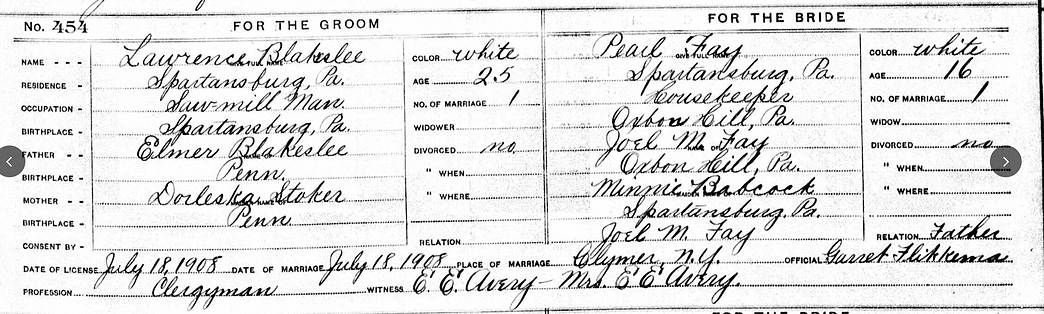 No. 454 FOR THE GROOM FOR THE BRIDE
NAME - - - Lawrence Blakeslee COLOR white Pearl Fay COLOR white
RESIDENCE - Spartansburg, Pa. AGE 25 Spartansburg, Pa. AGE 16
OCCUPATION - Saw-mill Man NO. OF MARRIAGE 1 Housekeeper NO. OF MARRIAGE 1
BIRTHPLACE - Spartansburg, Pa. WIDOWER Oxbon Hill, Pa. WIDOW
FATHER - - Elmer Blakeslee DIVORCED no Joel M. Fay DIVORCED no
BIRTHPLACE - Penn. " WHEN Oxbon Hill, Pa. " WHEN
MOTHER - - Dorleska Stoker " WHERE Minnie Babcock " WHERE
BIRTHPLACE - Penn Spartansburg, Pa.
CONSENT BY - RELATION Joel M. Fay RELATION Father
DATE OF LICENSE July 18, 1908 DATE OF MARRIAGE July 18, 1908 PLACE OF MARRIAGE Clymer, N.Y. OFFICIAL Garret Flikkema
PROFESSION Clergyman WITNESS E. E. Avery - Mrs. E E Avery.
FOR THE BRIDE